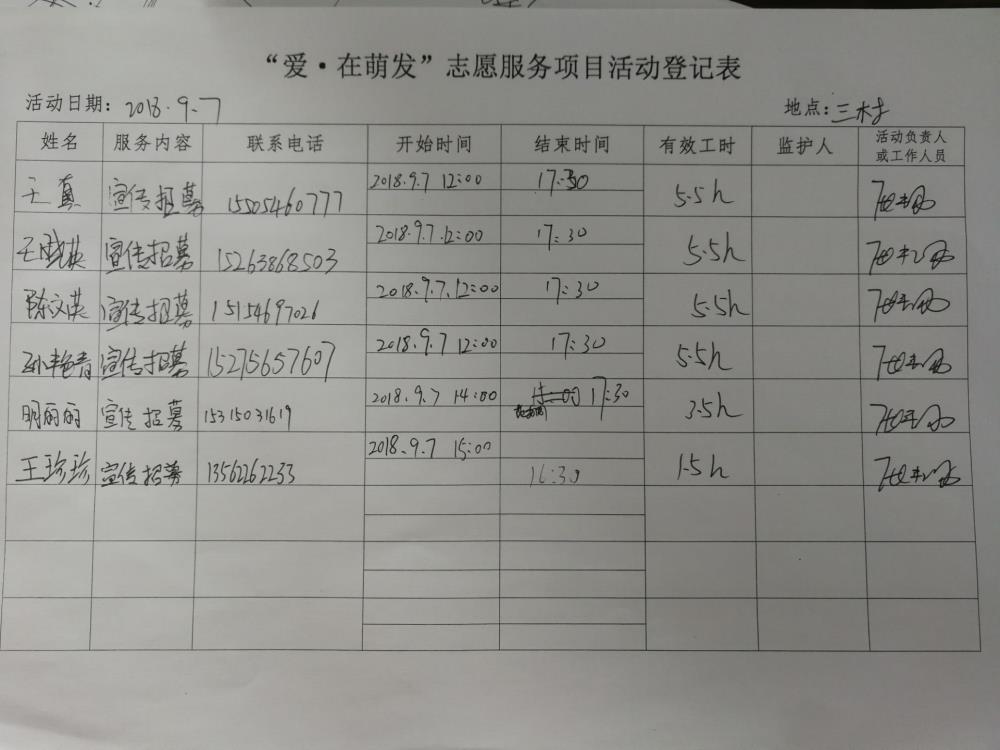 “爱·在萌发”志愿服务项目活动登记表
活动日期：2018.9.7 地点：三村
姓名 服务内容 联系电话 开始时间 结束时间 有效工时 监护人 活动负责人或工作人员
王真 宣传招募 15505460777 2018.9.7 12:00 17:30 5.5h
宣传招募 15263868503 2018.9.7.12:00 17:30 5.5h
陈文英 宣传招募 15154697026 2018.9.7.12:00 17:30 5.5h
孙艳青 宣传招募 15275657607 2018.9.7 12:00 17:30 5.5h
明丽丽 宣传招募 15315031619 2018.9.7 14:00 17:30 3.5h
王珍珍 宣传招募 13562262233 2018.9.7 15:00 16:30 1.5h